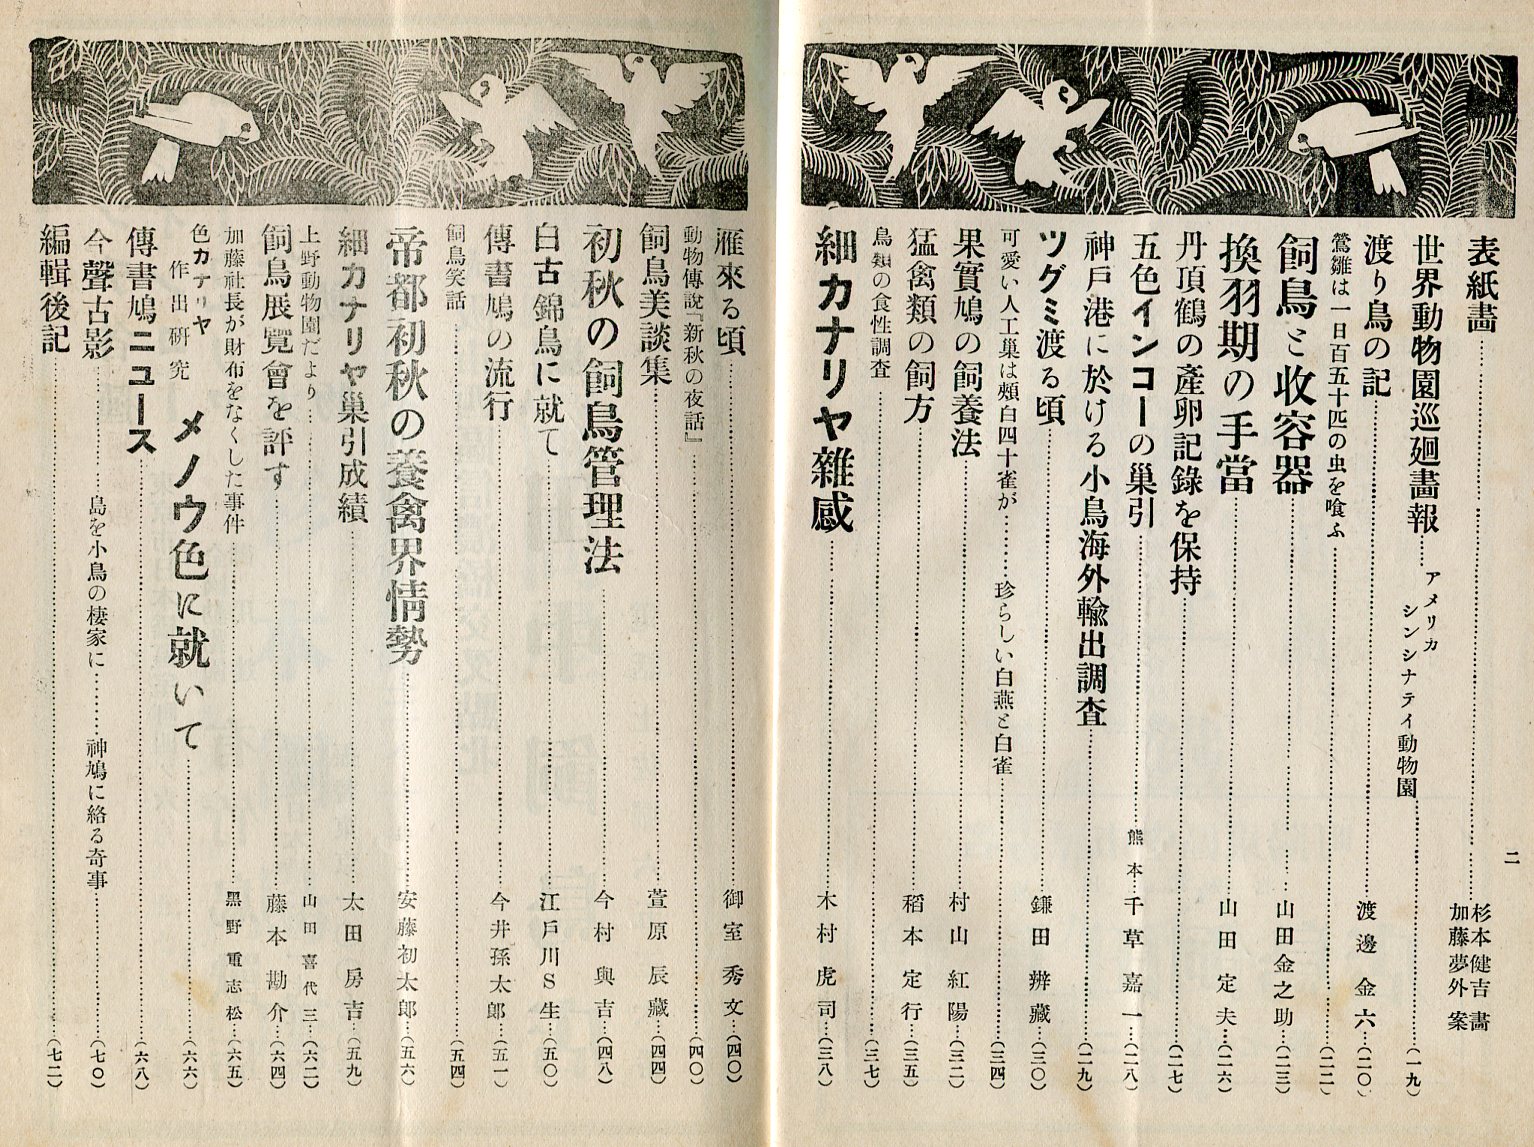 二
表紙畵……杉本健吉畵
加藤夢外案
世界動物園巡廻畵報……アメリカ シンシナテイ動物園……(一九)
渡り鳥の記……渡邊金六…(二〇)
鶯雛は一日百五十匹の虫を喰ふ……(二二)
飼鳥と收容器……山田金之助…(二三)
換羽期の手當……山田定夫…(二六)
丹頂鶴の產卵記錄を保持……(二七)
五色インコーの巢引……熊本 千草嘉一…(二八)
神戸港に於ける小鳥海外輸出調査……(二九)
ツグミ渡る頃……鎌田辨藏…(三〇)
可愛い人工巢は頰白四十雀が……珍らしい白燕と白雀……(三四)
果實鳩の飼養法……村山紅陽…(三二)
猛禽類の飼方……稻本定行…(三五)
鳥類の食性調査……(三七)
細カナリヤ雜感……木村虎司…(三八)
雁來る頃……御室秀文…(四〇)
動物傳說『新秋の夜話』……(四〇)
飼鳥美談集……萱原辰藏…(四四)
初秋の飼鳥管理法……今村與吉…(四八)
白古錦鳥に就て……江戸川S生…(五〇)
傳書鳩の流行……今井孫太郎…(五一)
飼鳥笑話……(五四)
帝都初秋の養禽界情勢……安藤初太郎…(五六)
細カナリヤ巢引成績……太田房吉…(五九)
上野動物園だより……山田喜代三…(六二)
飼鳥展覽會を評す……藤本勘介…(六四)
加藤社長が財布をなくした事件……黑野重志松…(六五)
色カナリヤ作出硏究 メノウ色に就いて……(六六)
傳書鳩ニュース……(六八)
今聲古影……鳥を小鳥の棲家に……神鳩に絡る奇事……(七〇)
編輯後記……(七二)